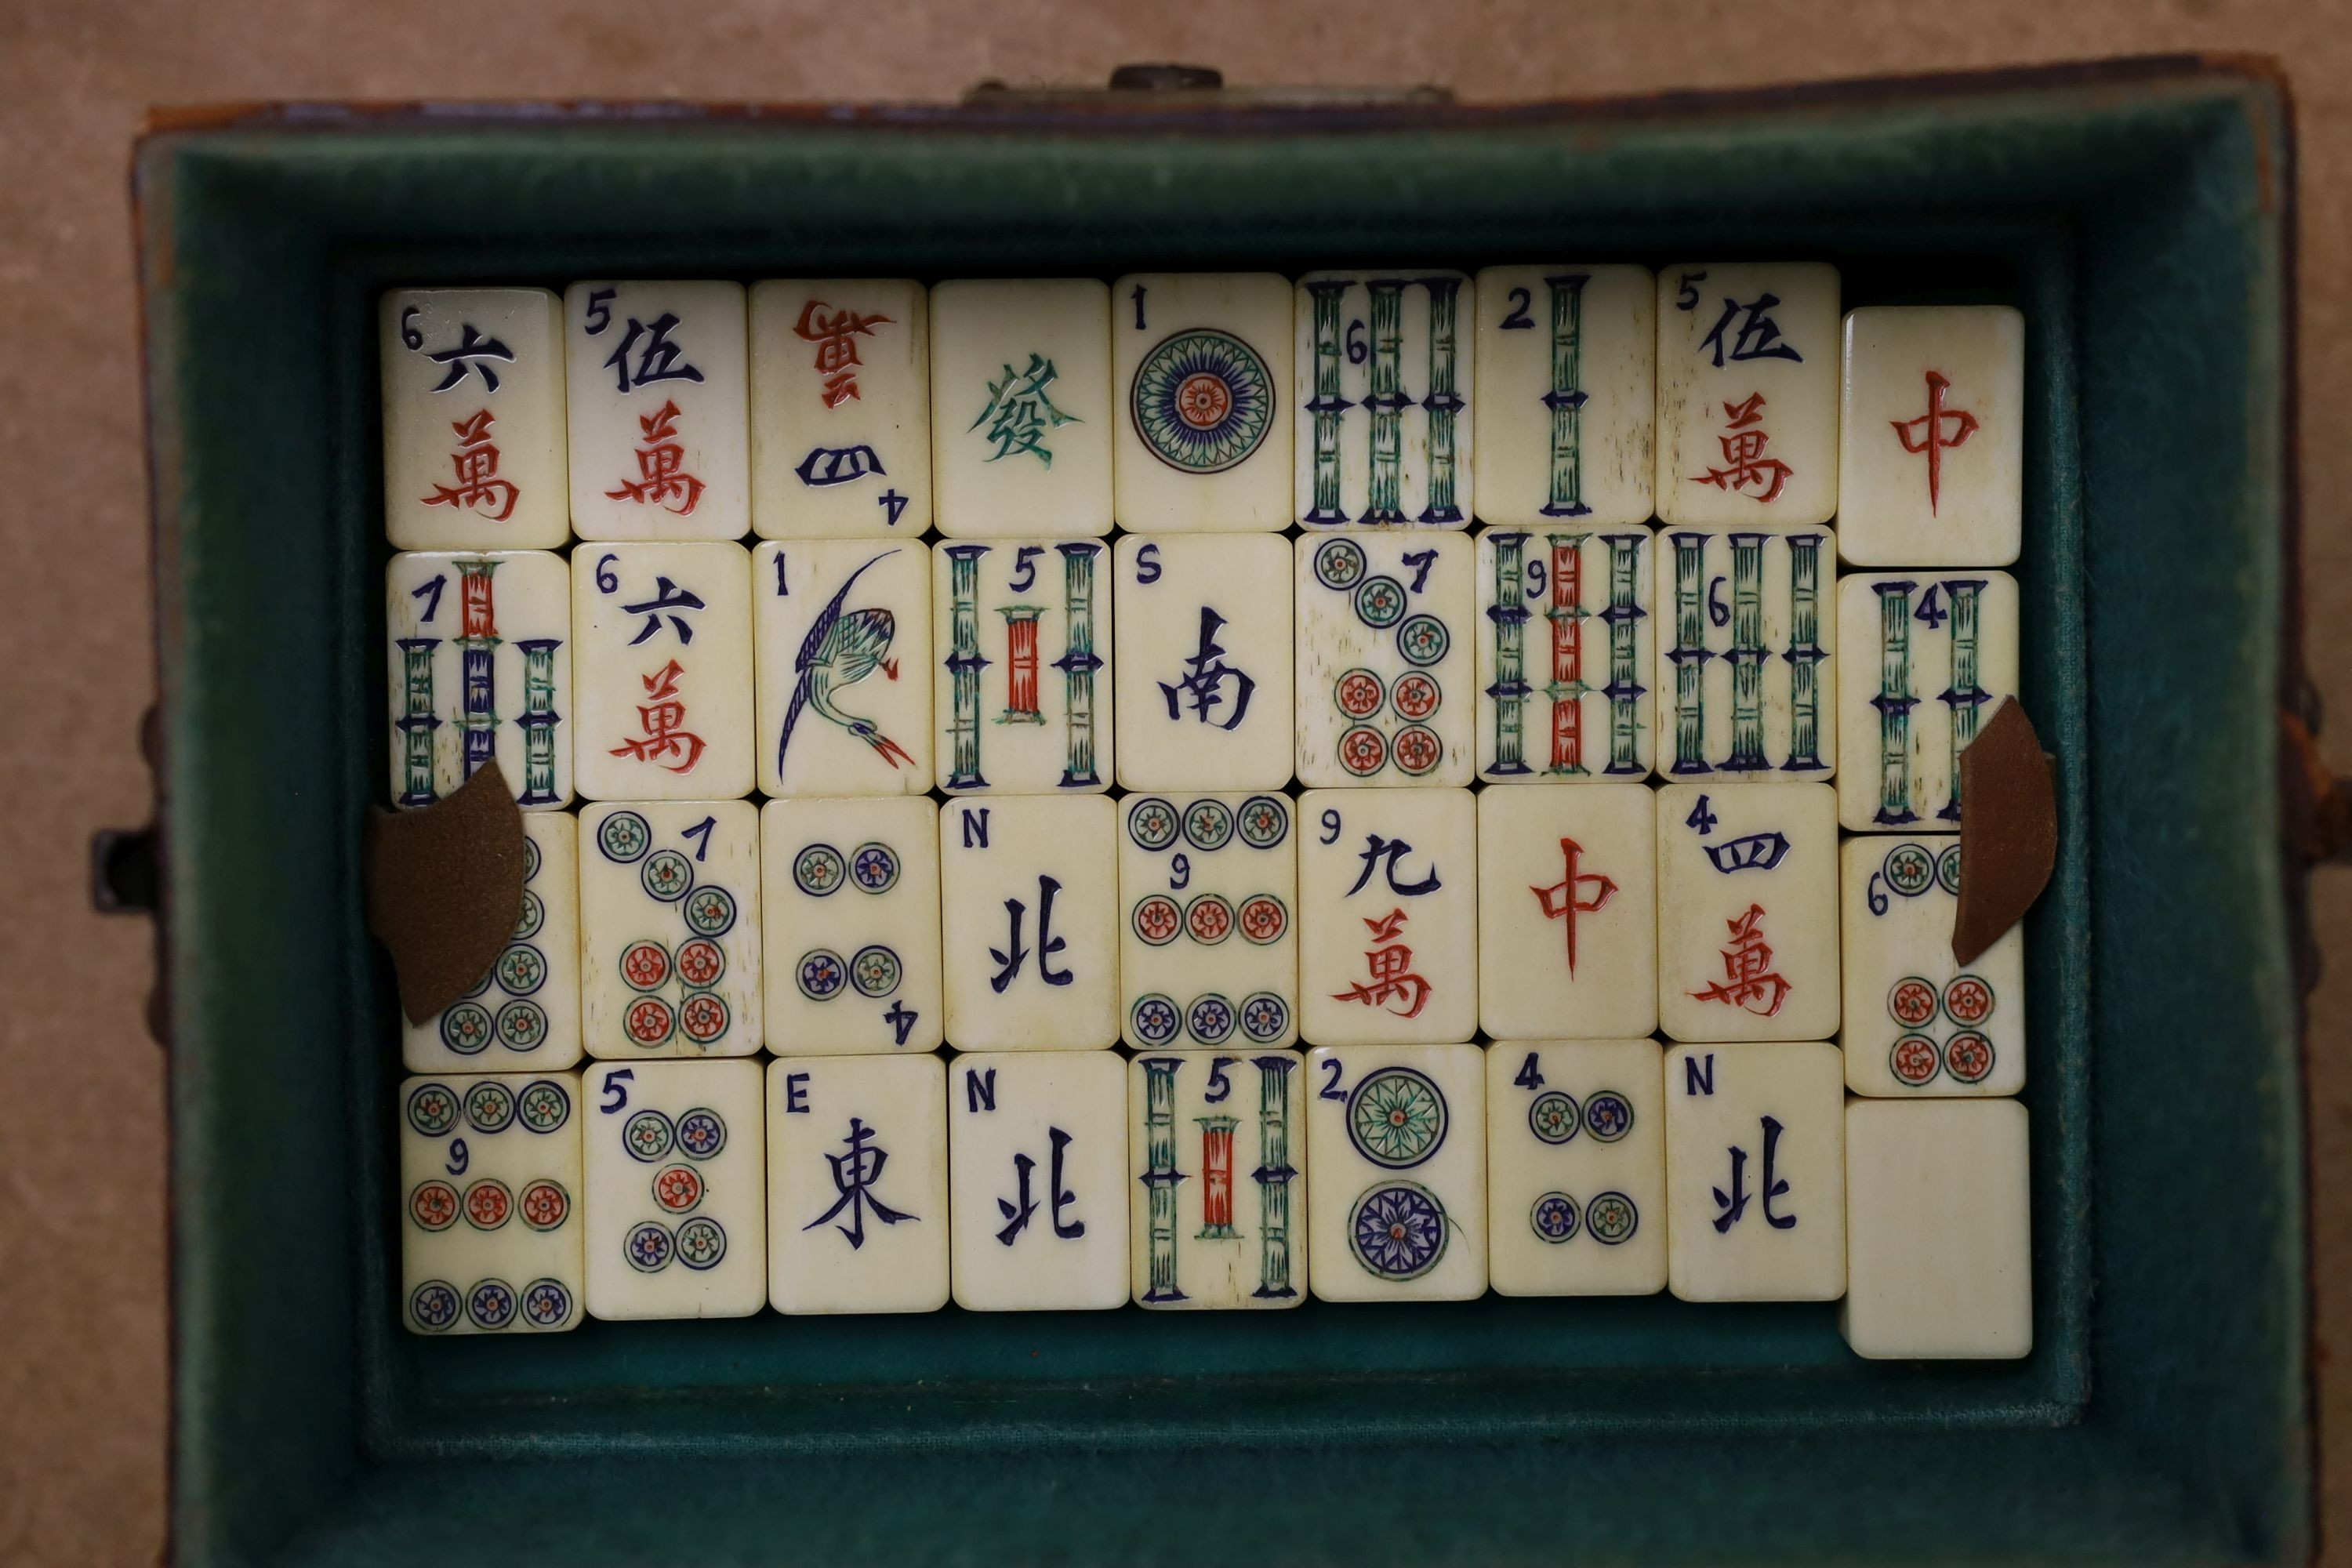 6 六 萬
5 伍 萬
4 四 萬
發
1
6
2
5 伍 萬
中
7
6 六 萬
1
5
S 南
7
9
6
4
7
4
N 北
9
9 九 萬
中
4 四 萬
6
9
5
E 東
N 北
5
2
4
N 北